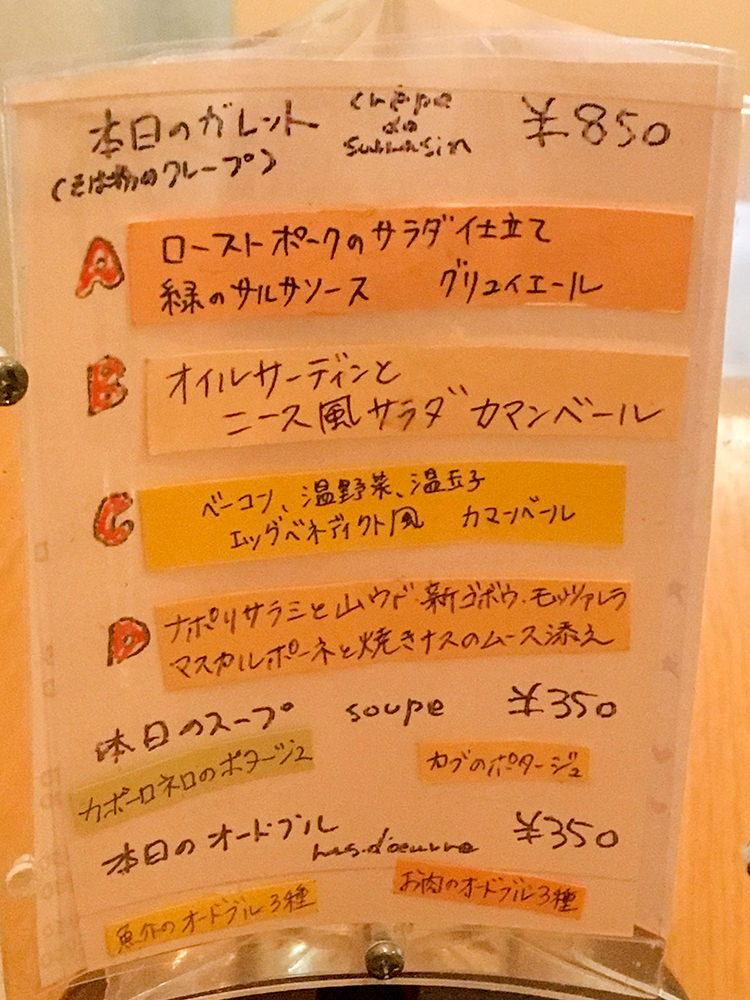 本日のガレット crêpe de sarrasin ¥850
(そば粉のクレープ)
A ローストポークのサラダ仕立て
緑のサルサソース グリュイエール
B オイルサーディンと
ニース風サラダ カマンベール
C ベーコン、温野菜、温玉子
エッグベネディクト風 カマンベール
D ナポリサラミと山ウド・新ゴボウ・モッツァレラ
マスカルポーネと焼きナスのムース添え
本日のスープ soupe ¥350
カボーロネロのポタージュ カブのポタージュ
本日のオードブル hors-d'oeuvre ¥350
魚介のオードブル3種 お肉のオードブル3種